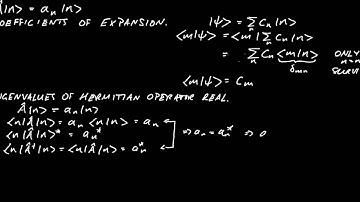 Â|n> = aₙ|n>
OEFFICIENTS OF EXPANSION. |ψ> = Σₙ Cₙ|n>
<m|ψ> = <m|Σₙ Cₙ|n>
= Σₙ Cₙ <m|n> ONLY
δₘₙ n=m
SURVI
<m|ψ> = Cₘ
IGENVALUES OF HERMITIAN OPERATOR REAL.
Â|n> = aₙ|n>
<n|Â|n> = aₙ <n|n> = aₙ
<n|Â|n>* = aₙ* ⇒ aₙ = aₙ* ⇒ a
<n|Â†|n> = <n|Â|n> = aₙ*